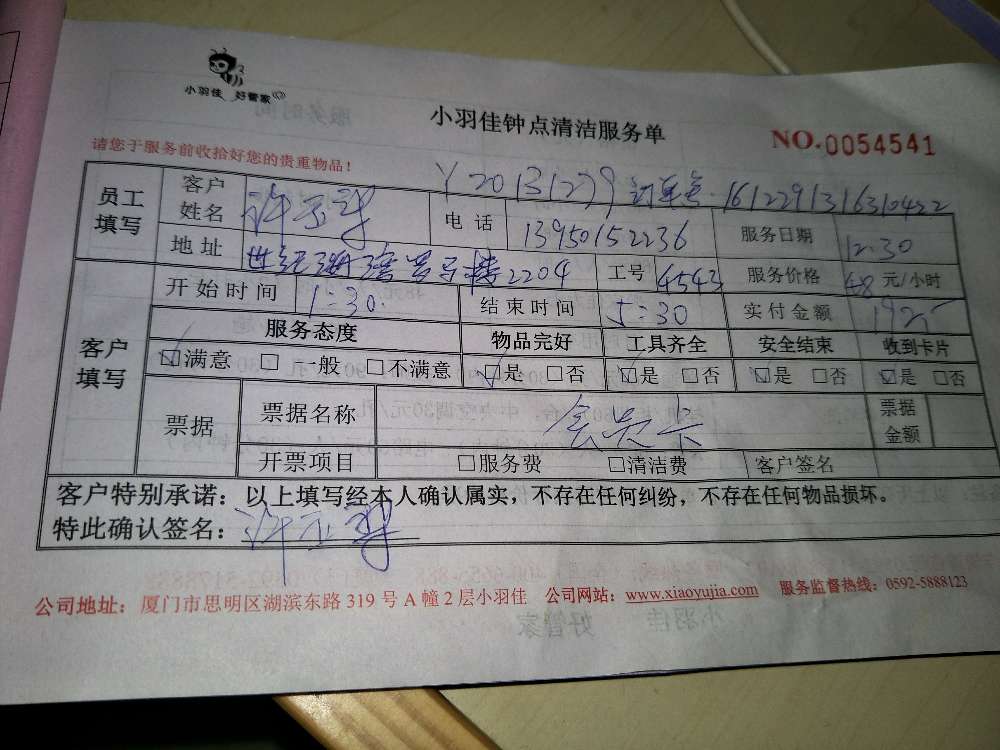 小羽佳 好管家
小羽佳钟点清洁服务单
NO.0054541
请您于服务前收拾好您的贵重物品!
Y20131279 订单号:1612291316310422
员工填写 客户姓名 许 电话 13950152236 服务日期 12.30
地址 世纪 2204 工号 4543 服务价格 48元/小时
客户填写 开始时间 1:30. 结束时间 5:30 实付金额 192
服务态度 物品完好 工具齐全 安全结束 收到卡片
☑满意 □一般 □不满意 ☑是 □否 ☑是 □否 ☑是 □否 ☑是 □否
票据 票据名称 会员卡 票据金额
开票项目 □服务费 □清洁费 客户签名
客户特别承诺:以上填写经本人确认属实,不存在任何纠纷,不存在任何物品损坏。
特此确认签名:许
公司地址:厦门市思明区湖滨东路 319 号 A 幢 2 层小羽佳 公司网站:www.xiaoyujia.com 服务监督热线:0592-5888123